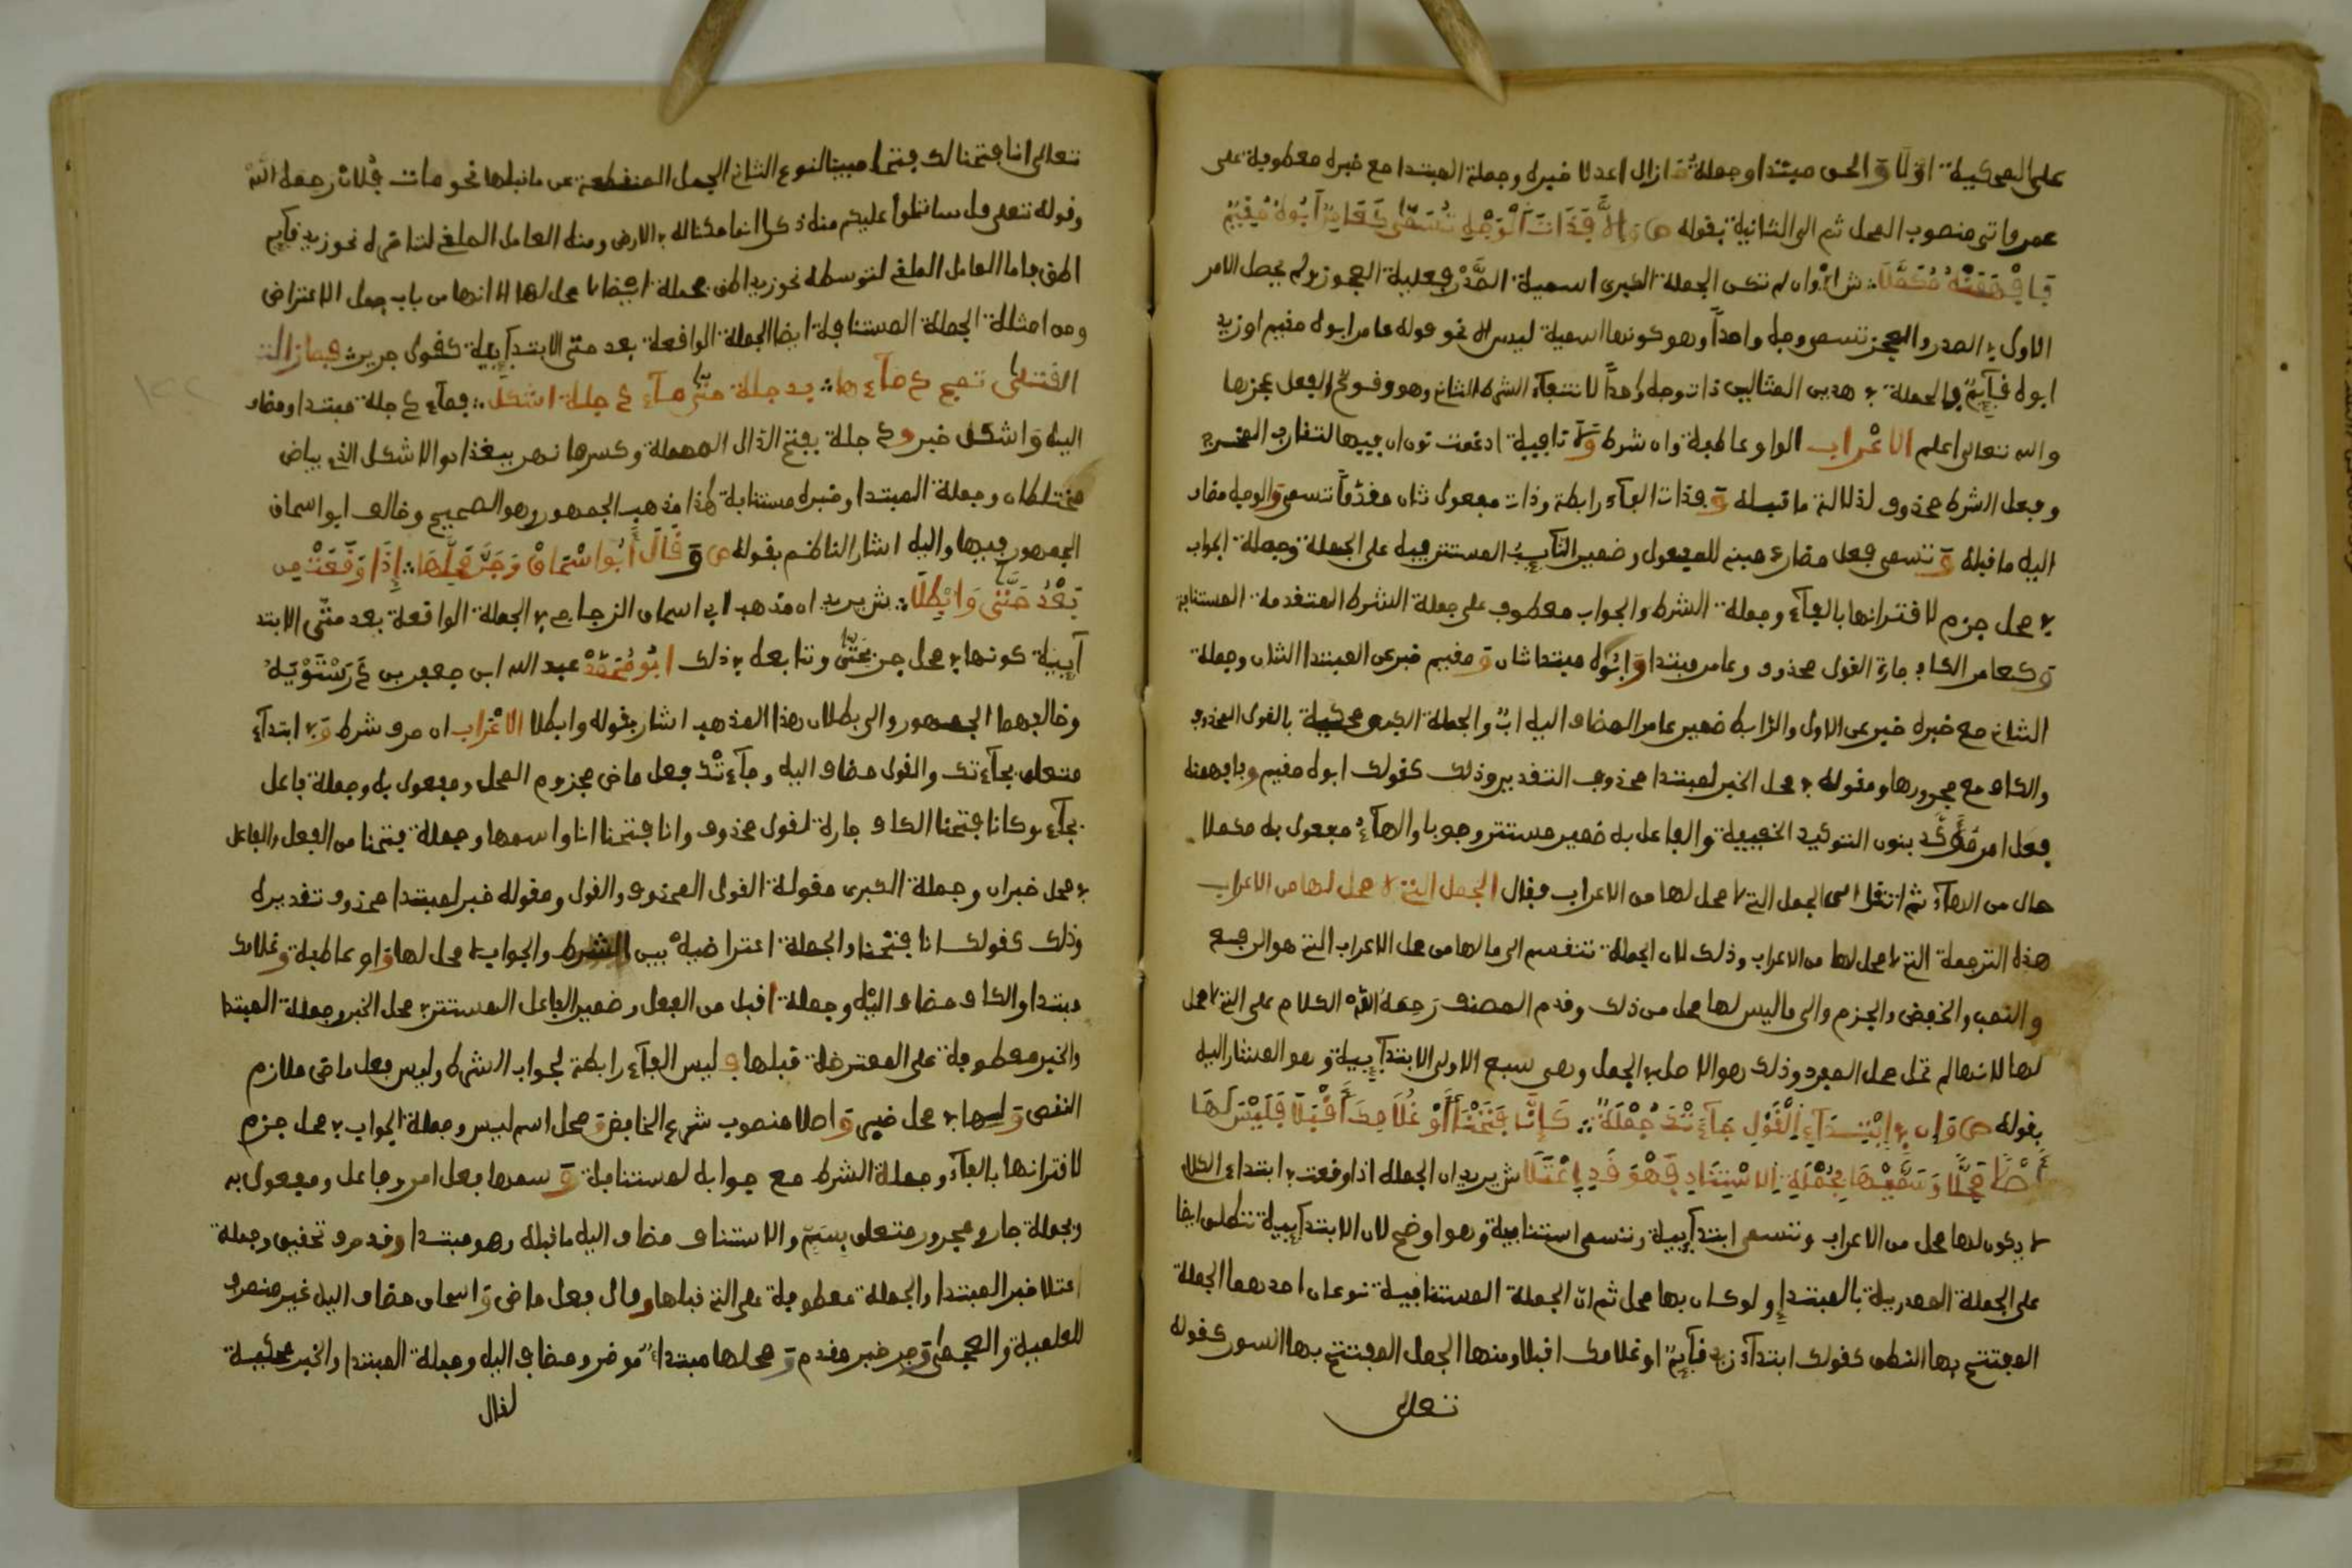 على المحكية اولا والحق مبتدا وجملة ما زال اعدلا خبره وجملة المبتدا مع خبره معطوفة على
عمرو اتى منصوب المحل ثم الى الثانية بقوله ص والا فذات الوجه تسمى كعامر ابوه مقيم
فافهمنه مكملا ش اي وان لم تكن الجملة الكبرى اسمية الصدر فعلية العجز ولم يحصل الامر
الاول في الصدر والعجز تسمى وجه واحدا وهو كونها اسمية ليس الا نحو قوله عامر ابوه مقيم او زيد
ابوه قايم فالجملة في هذين المثالين ذات وجه واحد لانتفاء الشرط الثاني وهو وقوع الفعل عجزها
والله تعالى اعلم الاعراب الواو عاطفة وان شرط ولا نافية ادغمت نون ان فيها لتقارب المخرج
وفعل الشرط محذوف لدلالة ما قبله وفذات الفاء رابطة وذات مفعول ثان مقدما تسمى والوجه مضاف
اليه ما قبله وتسمى فعل مضارع مبني للمفعول وضمير النايب المستتر فيه على الجملة وجملة الجواب
في محل جزم لاقترانها بالفاء وجملة الشرط والجواب معطوف على جملة الشرط المتقدمة المستانفة
وكعامر الكاف جارة القول محذوف وعامر مبتدا وابوه مبتدا ثان ومقيم خبر عن المبتدا الثان وجملة
الثاني مع خبره خبر عن الاول والرابط ضمير عامر المضاف اليه اب والجملة الكبرى محكية بالقول المحذوف
والكاف مع مجرورها ومقوله في محل الخبر لمبتدا محذوف التقدير وذلك كقولك ابوه مقيم وفافهمنه
فعل امر مؤكد بنون التوكيد الخفيفة والفاعل به ضمير مستتر وجوبا والهاء مفعول به مكملا
حال من الهاء ثم انتقل الى الجمل التي لا محل لها من الاعراب فقال الجمل التي لا محل لها من الاعراب
هذه الترجمة التي لا محل لها من الاعراب وذلك لان الجملة تنقسم الى ما لها من محل الاعراب التي هو الرفع
والنصب والخفض والجزم والى ما ليس لها محل من ذلك وقدم المصنف رحمه الله الكلام على التي لا محل
لها لانها لم تحل محل المفرد وذلك هو الاصل في الجمل وهي سبع الاولى الابتدايية وهو المشار اليه
بقوله ص وان في ابتداء القول جاءتك جملة كانا فتحنا او غلامك اقبلا فليس لها
اصلا محلا وسمها بجملة الاستيناف فهو قد اعتلا ش يريد ان الجملة اذا وقعت في ابتداء الكلام
لا يكون لها محل من الاعراب وتسمى ابتدايية وتسمى استنافية وهو اوضح لان الابتدايية تنطلق ايضا
على الجملة المصدرية بالمبتدا ولو كان بها محل ثم ان الجملة المستنافية نوعان احدهما الجملة
المفتتح بها النطق كقولك ابتداء زيد قايم او غلامك اقبلا ومنها الجمل المفتتح بها السور كقوله
تعالى
تعالى انا فتحنا لك فتحا مبينا النوع الثاني الجمل المنقطعة عن ما قبلها نحو مات فلان رحمه الله
وقوله تعلى قل ساتلوا عليكم منه ذكرا انا مكنا له في الارض ومنه العامل الملغي لتاخره نحو زيد قايم
اظن فاما العامل الملغي لتوسطه نحو زيد اظن فجملة ايضا لا محل لها الا انها من باب جمل الاعتراض
ومن امثلة الجملة المستنافة ايضا الجملة الواقعة بعد حتى الابتدايية كقول جرير فما زالت
القتلى تمج دماءها بدجلة حتى ماء دجلة اشكل فماء دجلة مبتدا ومضاف
اليه واشكل خبر ودجلة بفتح الدال المهملة وكسرها نهر ببغداد والاشكل الذي بياض
مختلطان وجملة المبتدا وخبره مستنافة هذا مذهب الجمهور وهو الصحيح وخالف ابو اسحاق
الجمهور فيها واليه اشار الناظم بقوله ص وقال ابو اسحاق وجر محلها اذا وقعت من
بعد حتى وابطلا ش يريد ان مذهب ابي اسحاق الزجاج في الجملة الواقعة بعد حتى الابتد
آيية كونها في محل جر بحتى وتابعه في ذلك ابو محمد عبد الله ابن جعفر بن درستويه
وخالفهما الجمهور والى بطلان هذا المذهب اشار بقوله وابطلا الاعراب ان حرف شرط وفي ابتداء
متعلق بجاءتك والقول مضاف اليه وجاءتك فعل ماض مجزوم المحل ومفعول به وجملة فاعل
بجاء وكانا فتحنا الكاف جارة لقول محذوف وانا فتحنا انا واسمها وجملة فتحنا من الفعل والفاعل
في محل خبر ان وجملة الكبرى مقولة القول المحذوف والقول ومقوله خبر لمبتدا محذوف تقديره
وذلك كقولك انا فتحنا والجملة اعتراضية بين الشرط والجواب لا محل لها واو عاطفة وغلامك
مبتدا والكاف مضاف اليه وجملة اقبل من الفعل وضمير الفاعل المستتر في محل الخبر وجملة المبتدا
والخبر معطوفة على المعترضة قبلها وفليس الفاء رابطة لجواب الشرط وليس فعل ماض ملازم
النقص ولها في محل خبر واصلا منصوب بنزع الخافض ومحل اسم ليس وجملة الجواب في محل جزم
لاقترانها بالفاء وجملة الشرط مع جوابه لمستنافة وسمها فعل امر وفاعل ومفعول به
وبجملة جار ومجرور متعلق بسم والاستناف مضاف اليه ما قبله وهو مبتدا وقد حرف تحقيق وجملة
اعتلا خبر المبتدا والجملة معطوفة على التي قبلها وقال فعل ماض واسحاق مضاف اليه غير منصرف
للعلمية والعجمة وجر خبر مقدم ومحلها مبتدا موخر ومضاف اليه وجملة المبتدا والخبر محكية
لقال